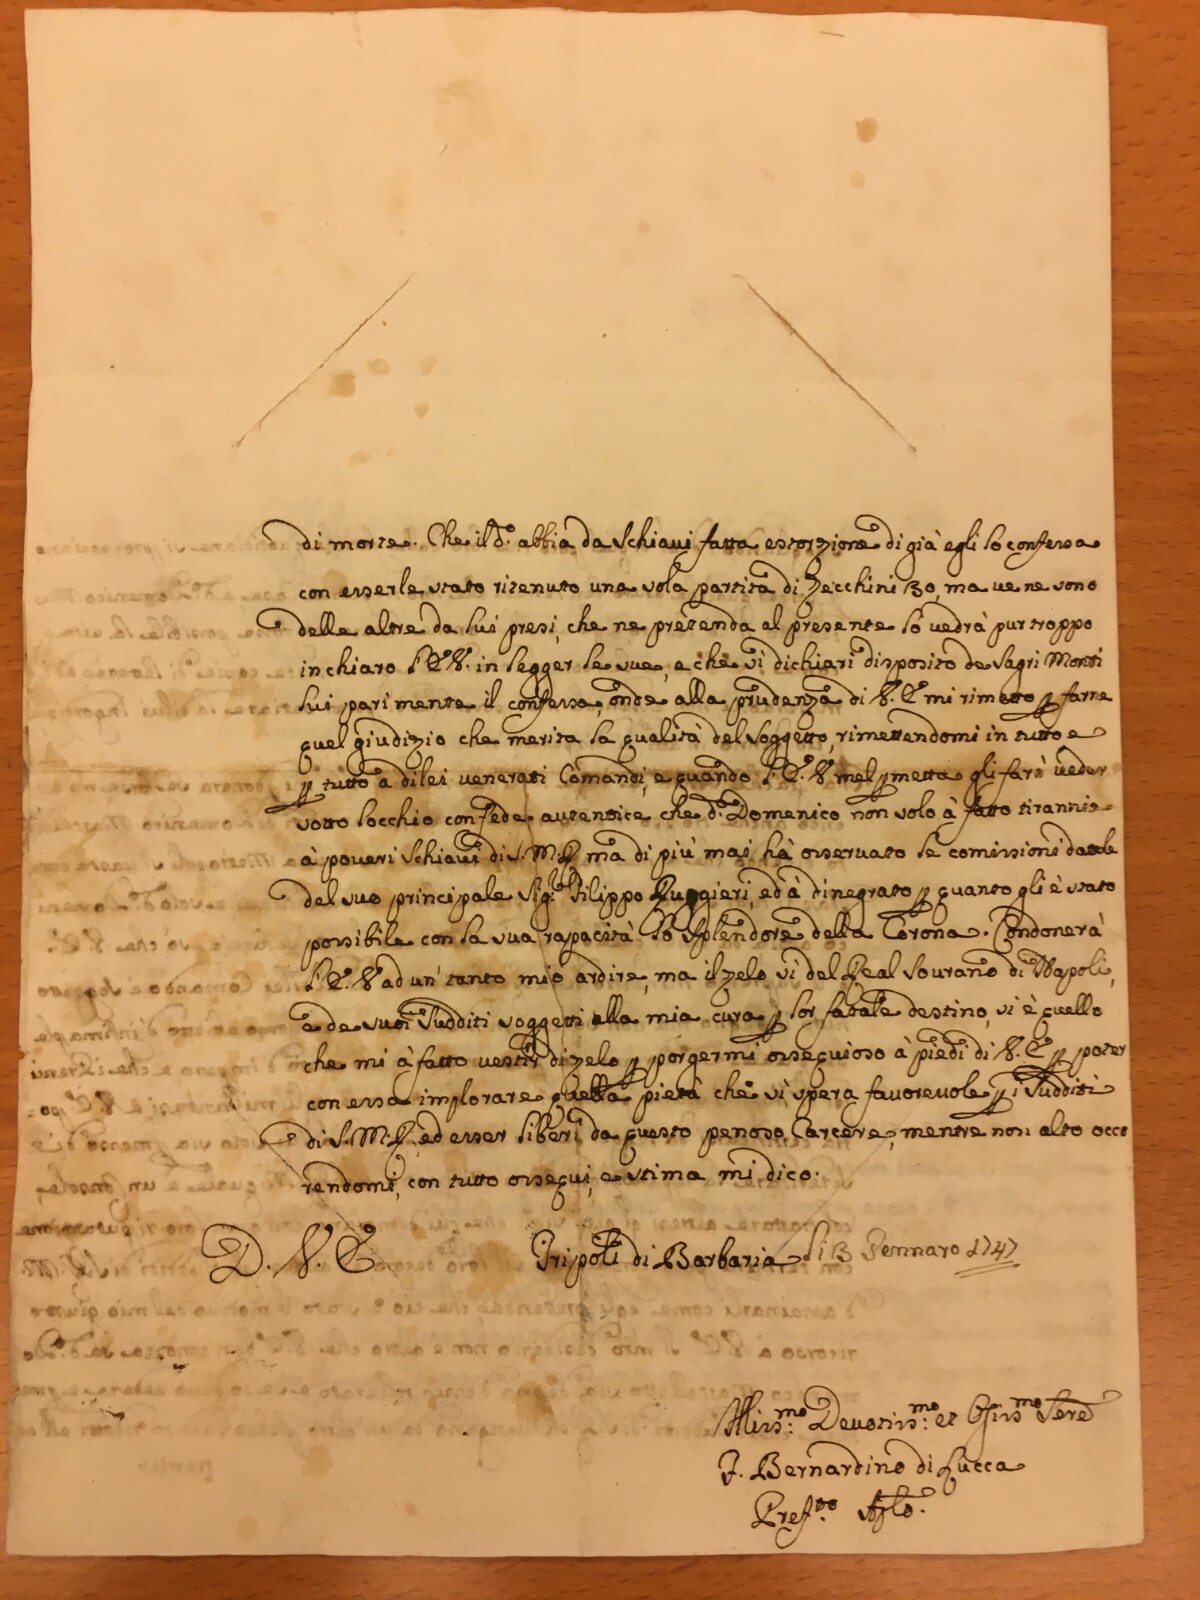 di morte. Che il d.º abbia da Schiavi fatta estorzione di già egli lo confessa
con esserle stato ritenuto una sola partita di Zecchini 30, ma ve ne sono
delle altre da lui presi, che ne pretenda al presente lo vedrà pur troppo
in chiaro l'E.V. in legger le sue, e che vi dichiari disposito de Sagri Monti
lui parimente il confessa, onde alla prudenza di V.E. mi rimetto p farne
quel giudizio che merita la qualità del soggetto, rimettendomi in tutto e
p tutto a di lei venerati Comandi, e quando l'E.V. mel pmetta gli farò veder
sotto l'occhio con fede autentice che d.º Domenico non solo à fatto tirannie
à poveri Schiavi di S.M.R. ma di più mai hà osservato le comissioni datele
del suo principale Sig.r Filippo Ruggieri, ed à dinegrato p quanto gli è stato
possibile con la sua rapacità lo splendore della Corona. Condonerà
l'E.V. ad un tanto mio ardire, ma il zelo vi del Real Sourano di Napoli,
e de suoi Sudditi soggetti alla mia cura p lor fatale destino, vi è quello
che mi à fatto vestir di zelo p porgermi ossequioso à piedi di V.E. p poter
con essa implorare quella pietà che vi spera favorevole p i Sudditi
di S.M.R. ed esser liberi da questo penoso Carcere, mentre non alto occo
rendomi, con tutto ossequi, e stima mi dico.
D. V. E. Tripoli di Barbaria li 3 Gennaro 1747
Devotiss.mo et Serve
F. Bernardino di Lucca
Pref.to Aplo.